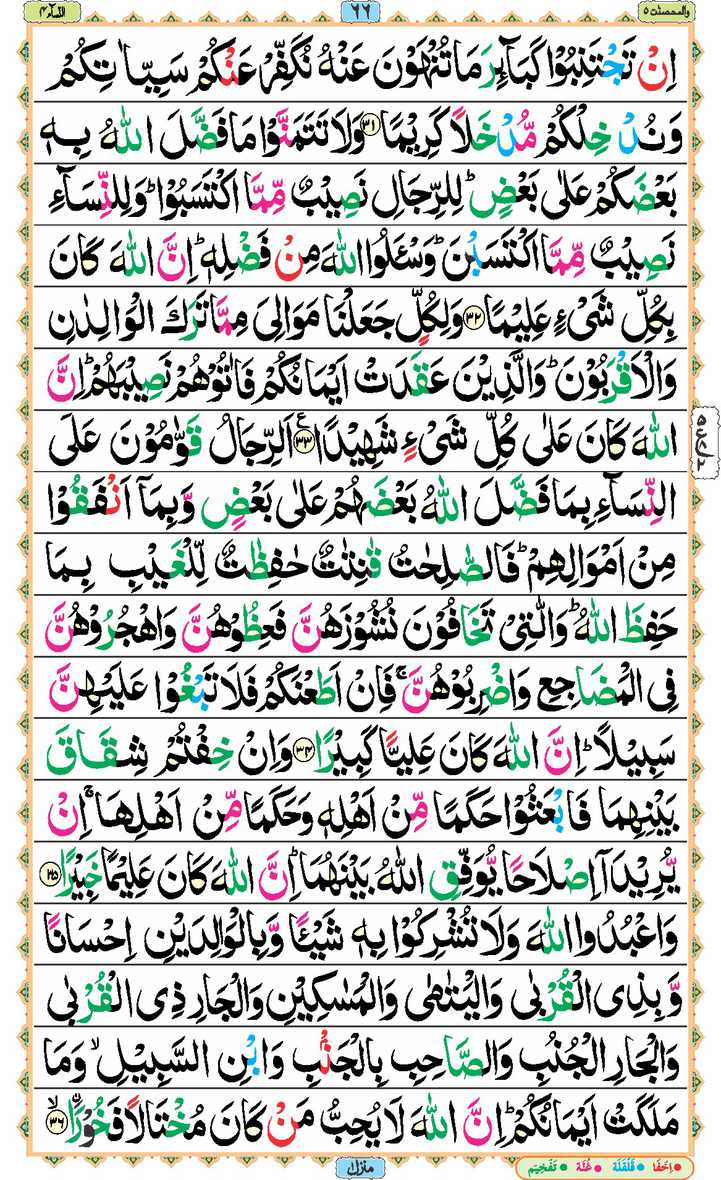 والمحصنت ٥ ٦٦ النساء ٤
اِنْ تَجْتَنِبُوْا كَبَآىِٕرَ مَا تُنْهَوْنَ عَنْهُ نُكَفِّرْ عَنْكُمْ سَيِّاٰتِكُمْ
وَنُدْخِلْكُمْ مُّدْخَلًا كَرِيْمًا ﴿٣١﴾ وَلَا تَتَمَنَّوْا مَا فَضَّلَ اللّٰهُ بِهٖ
بَعْضَكُمْ عَلٰى بَعْضٍ ؕ لِلرِّجَالِ نَصِيْبٌ مِّمَّا اكْتَسَبُوْا ؕ وَلِلنِّسَآءِ
نَصِيْبٌ مِّمَّا اكْتَسَبْنَ ؕ وَسْـَٔلُوا اللّٰهَ مِنْ فَضْلِهٖ ؕ اِنَّ اللّٰهَ كَانَ
بِكُلِّ شَیْءٍ عَلِيْمًا ﴿٣٢﴾ وَلِكُلٍّ جَعَلْنَا مَوَالِیَ مِمَّا تَرَكَ الْوَالِدٰنِ
وَالْاَقْرَبُوْنَ ؕ وَالَّذِيْنَ عَقَدَتْ اَيْمَانُكُمْ فَاٰتُوْهُمْ نَصِيْبَهُمْ ؕ اِنَّ
اللّٰهَ كَانَ عَلٰى كُلِّ شَیْءٍ شَهِيْدًا ﴿٣٣﴾ ع اَلرِّجَالُ قَوّٰمُوْنَ عَلَى
النِّسَآءِ بِمَا فَضَّلَ اللّٰهُ بَعْضَهُمْ عَلٰى بَعْضٍ وَّبِمَاۤ اَنْفَقُوْا
مِنْ اَمْوَالِهِمْ ؕ فَالصّٰلِحٰتُ قٰنِتٰتٌ حٰفِظٰتٌ لِّلْغَيْبِ بِمَا
حَفِظَ اللّٰهُ ؕ وَالّٰتِیْ تَخَافُوْنَ نُشُوْزَهُنَّ فَعِظُوْهُنَّ وَاهْجُرُوْهُنَّ
فِی الْمَضَاجِعِ وَاضْرِبُوْهُنَّ ۚ فَاِنْ اَطَعْنَكُمْ فَلَا تَبْغُوْا عَلَيْهِنَّ
سَبِيْلًا ؕ اِنَّ اللّٰهَ كَانَ عَلِيًّا كَبِيْرًا ﴿٣٤﴾ وَاِنْ خِفْتُمْ شِقَاقَ
بَيْنِهِمَا فَابْعَثُوْا حَكَمًا مِّنْ اَهْلِهٖ وَحَكَمًا مِّنْ اَهْلِهَا ۚ اِنْ
يُّرِيْدَاۤ اِصْلَاحًا يُّوَفِّقِ اللّٰهُ بَيْنَهُمَا ؕ اِنَّ اللّٰهَ كَانَ عَلِيْمًا خَبِيْرًا ﴿٣٥﴾
وَاعْبُدُوا اللّٰهَ وَلَا تُشْرِكُوْا بِهٖ شَيْـًٔا وَّبِالْوَالِدَيْنِ اِحْسَانًا
وَّبِذِی الْقُرْبٰى وَالْيَتٰمٰى وَالْمَسٰكِيْنِ وَالْجَارِ ذِی الْقُرْبٰى
وَالْجَارِ الْجُنُبِ وَالصَّاحِبِ بِالْجَنْۢبِ وَابْنِ السَّبِيْلِ ۙ وَمَا
مَلَكَتْ اَيْمَانُكُمْ ؕ اِنَّ اللّٰهَ لَا يُحِبُّ مَنْ كَانَ مُخْتَالًا فَخُوْرًا ۙ ﴿٣٦﴾
اِخْفَا قَلْقَلَه غُنَّه تَفْخِيْم منزل